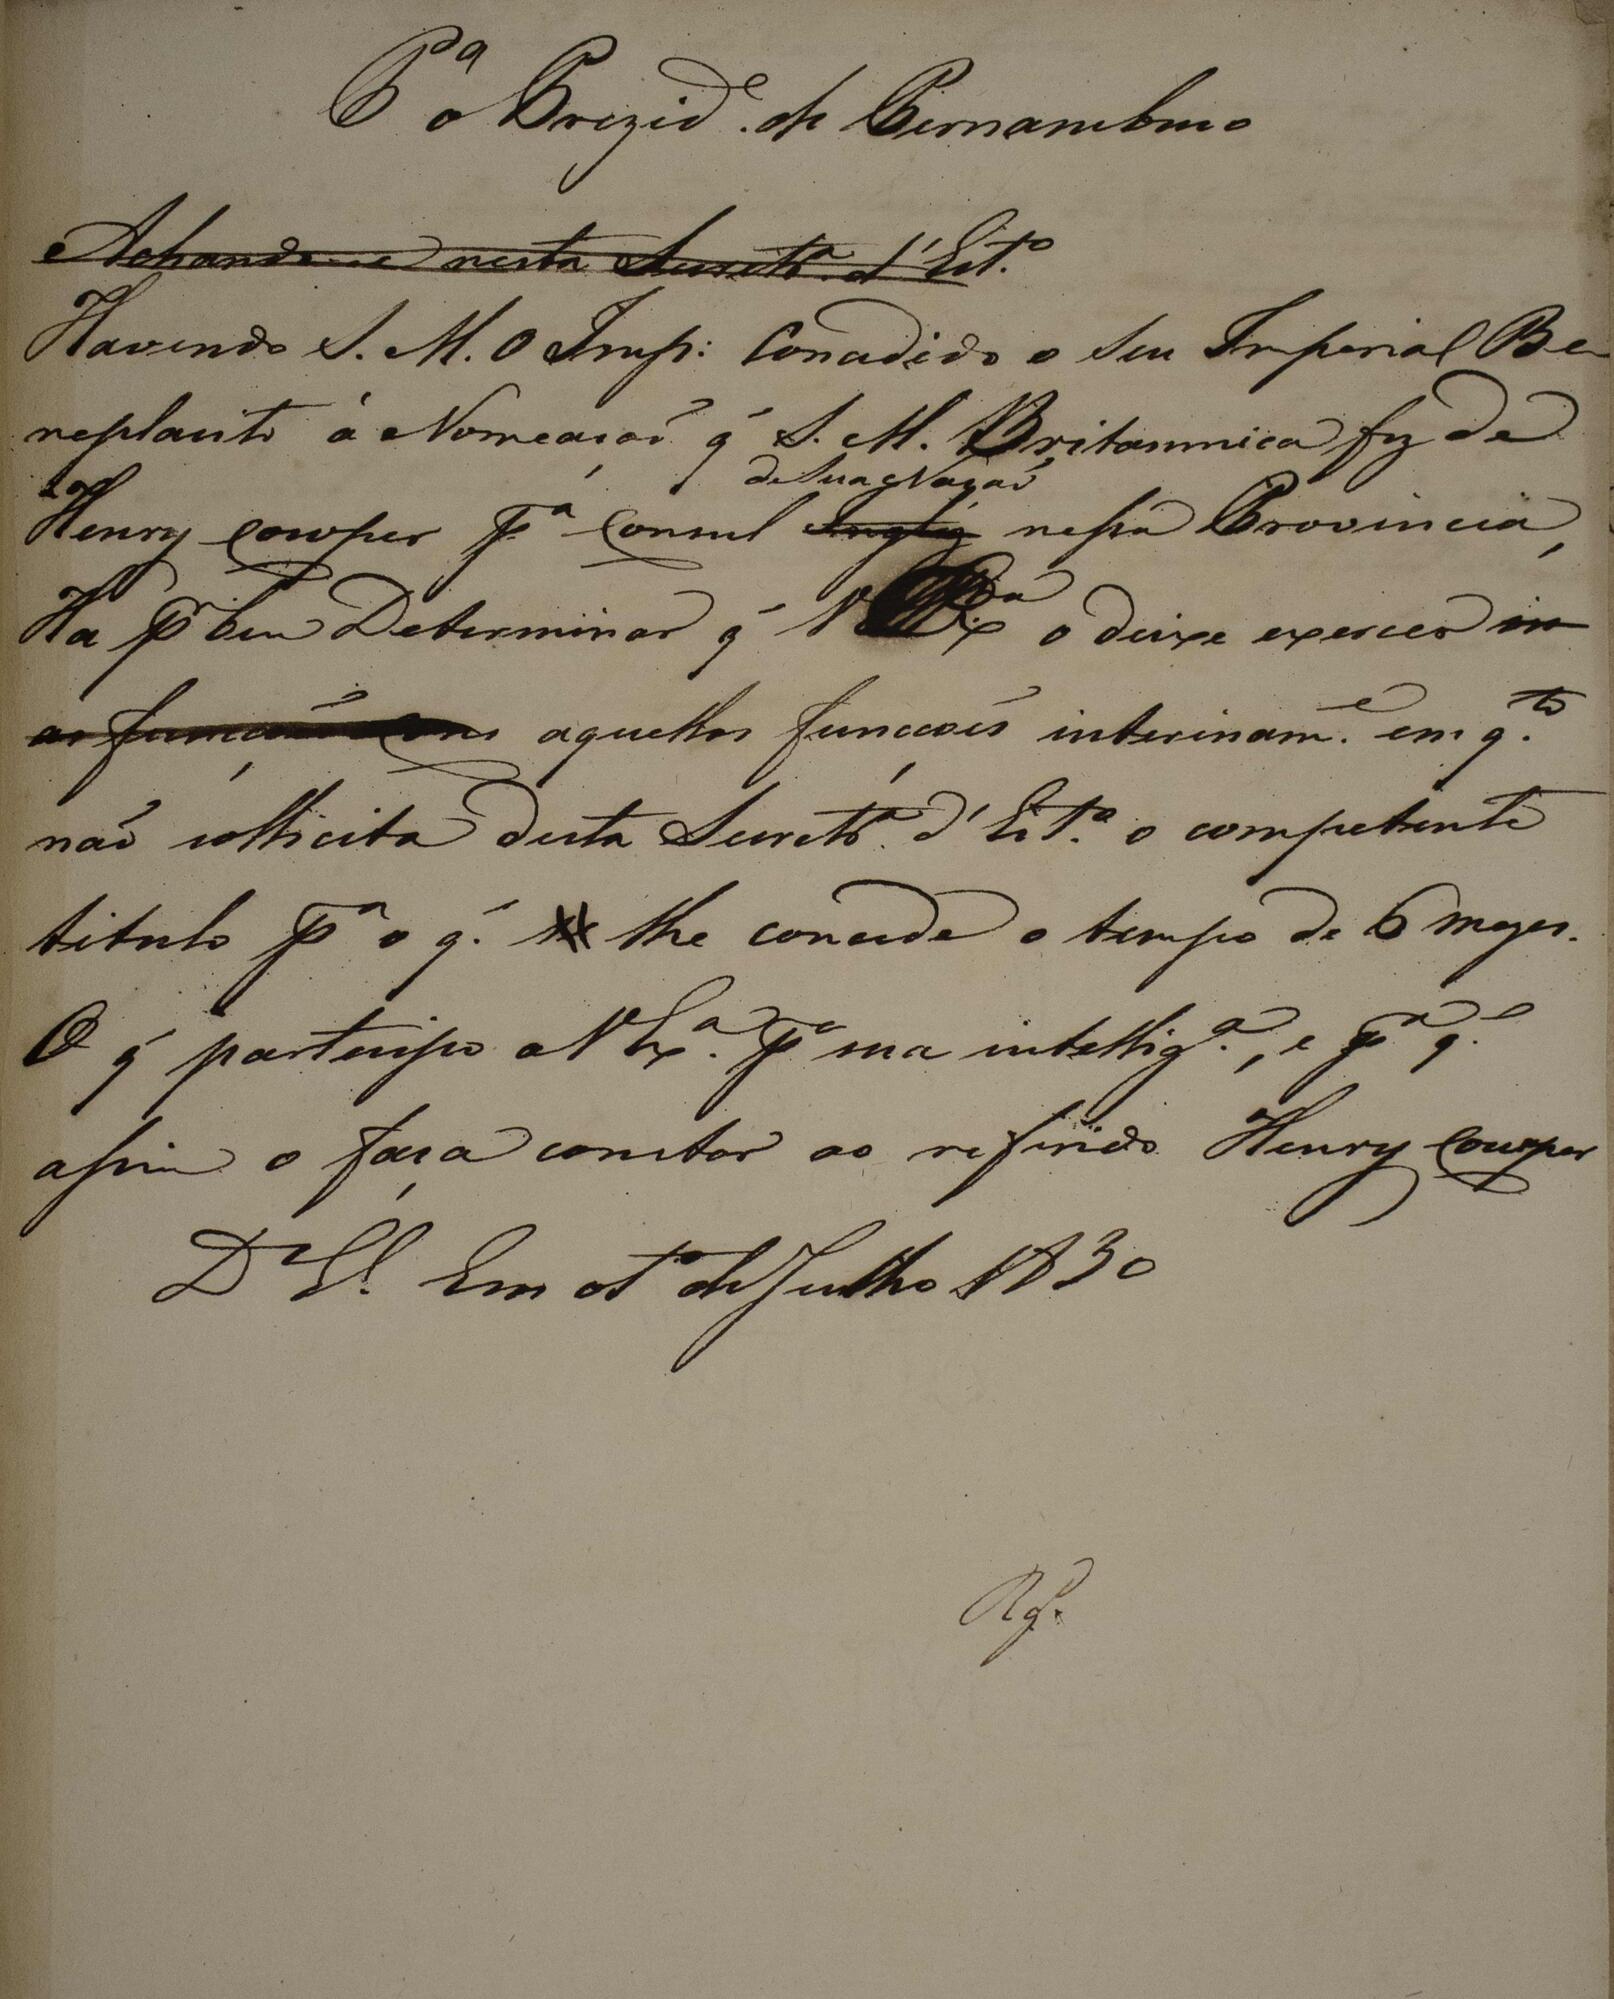 Pª o Prezid.e de Pernambuco
Achando-se nesta Secretrª d'Estº
Havendo S. M. O Imp: Concedido o seu Imperial Be-
neplacito á Nomeação q' S. M. Britannica fez de
de Sua Nação
Henry Cowper pª Consul Inglez nessa Provincia,
Ha pr bem Determinar q' V Exª o deixe exercer in
as funcções Cons aquellas funccoes interinam.e em q.to
não sollicita desta Secretrª d'Estª o competente
titulo pª o q' se lhe concede o tempo de 6 mezes.
O q' participo a V Exª. pª sua intelligª., e pª q.e
assim o faça constar ao referido Henry Cowper
Ds Ge. Em de Julho 1830
Rg.